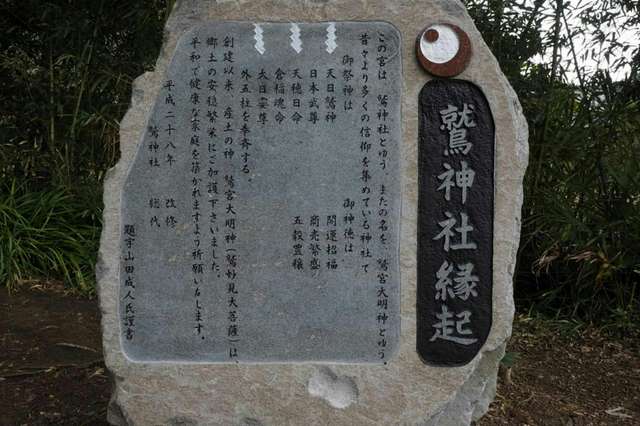 鷲神社縁起
この宮は 鷲神社とゆう またの名を 鷲宮大明神とゆう。
昔々より多くの信仰を集めている神社て
御祭神は 御神徳は
天日鷲神 開運招福
日本武尊 商売繁盛
天穂日命 五穀豊穣
倉稲魂命
大日孁尊
外五社を奉斉する。
創建以来 産土の神 鷲宮大明神(鷲妙見大菩薩)は、
郷土の安穏繁栄にご加護下さいました。
平和で健康な家庭を築かれますよう祈願いたします。
平成二十八年 改修
鷲神社 総代
題字山田成人氏謹書